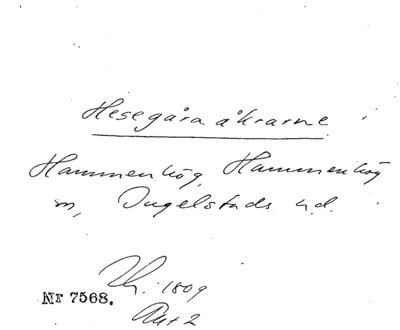 Hesegåra åkrarne
Hammenhög, Hammenhög
sn, Ingelstads hd.
1809
Nr 7568.
Akt 2